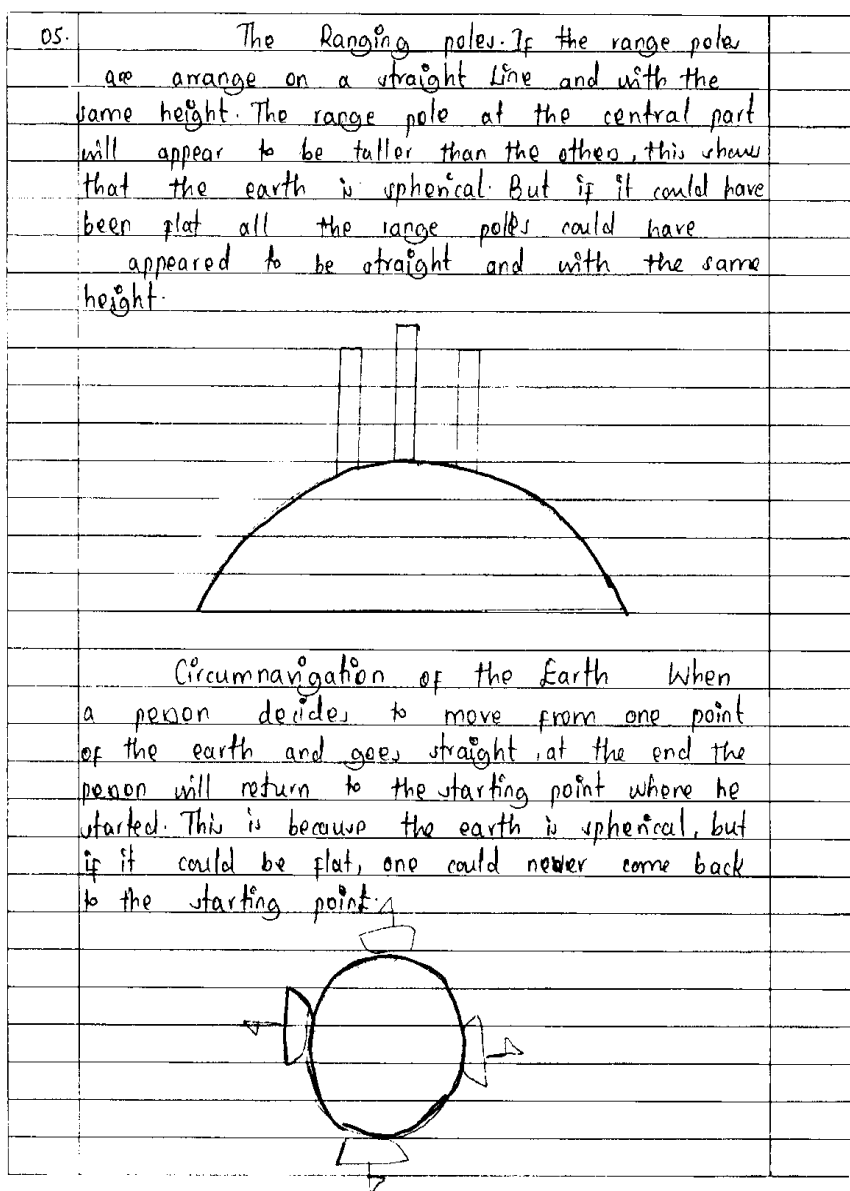 05. The Ranging poles. If the range poles
are arrange on a straight Line and with the
same height. The range pole at the central part
will appear to be taller than the others, this shows
that the earth is spherical. But if it could have
been flat all the range poles could have
appeared to be straight and with the same
height.
Circumnavigation of the Earth When
a person decides to move from one point
of the earth and goes straight, at the end the
person will return to the starting point where he
started. This is because the earth is spherical, but
if it could be flat, one could never come back
to the starting point.